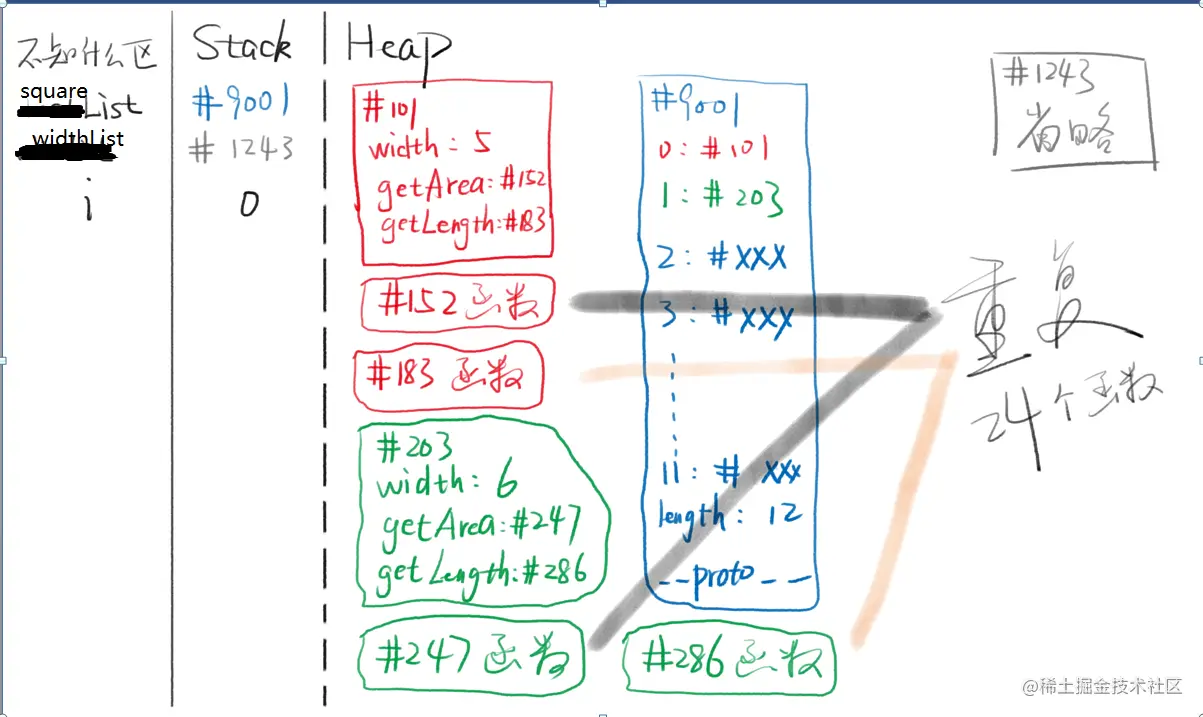 不知什么区
square
List
widthList
i
Stack
#9001
#1243
0
Heap
#101
width: 5
getArea:#152
getLength:#183
#152函数
#183函数
#203
width: 6
getArea:#247
getLength:#286
#247函数
#9001
0: #101
1: #203
2: #XXX
3: #XXX
11: # XXX
length: 12
--proto--
#286函数
#1243
省略
重复
24个函数
@稀土掘金技术社区